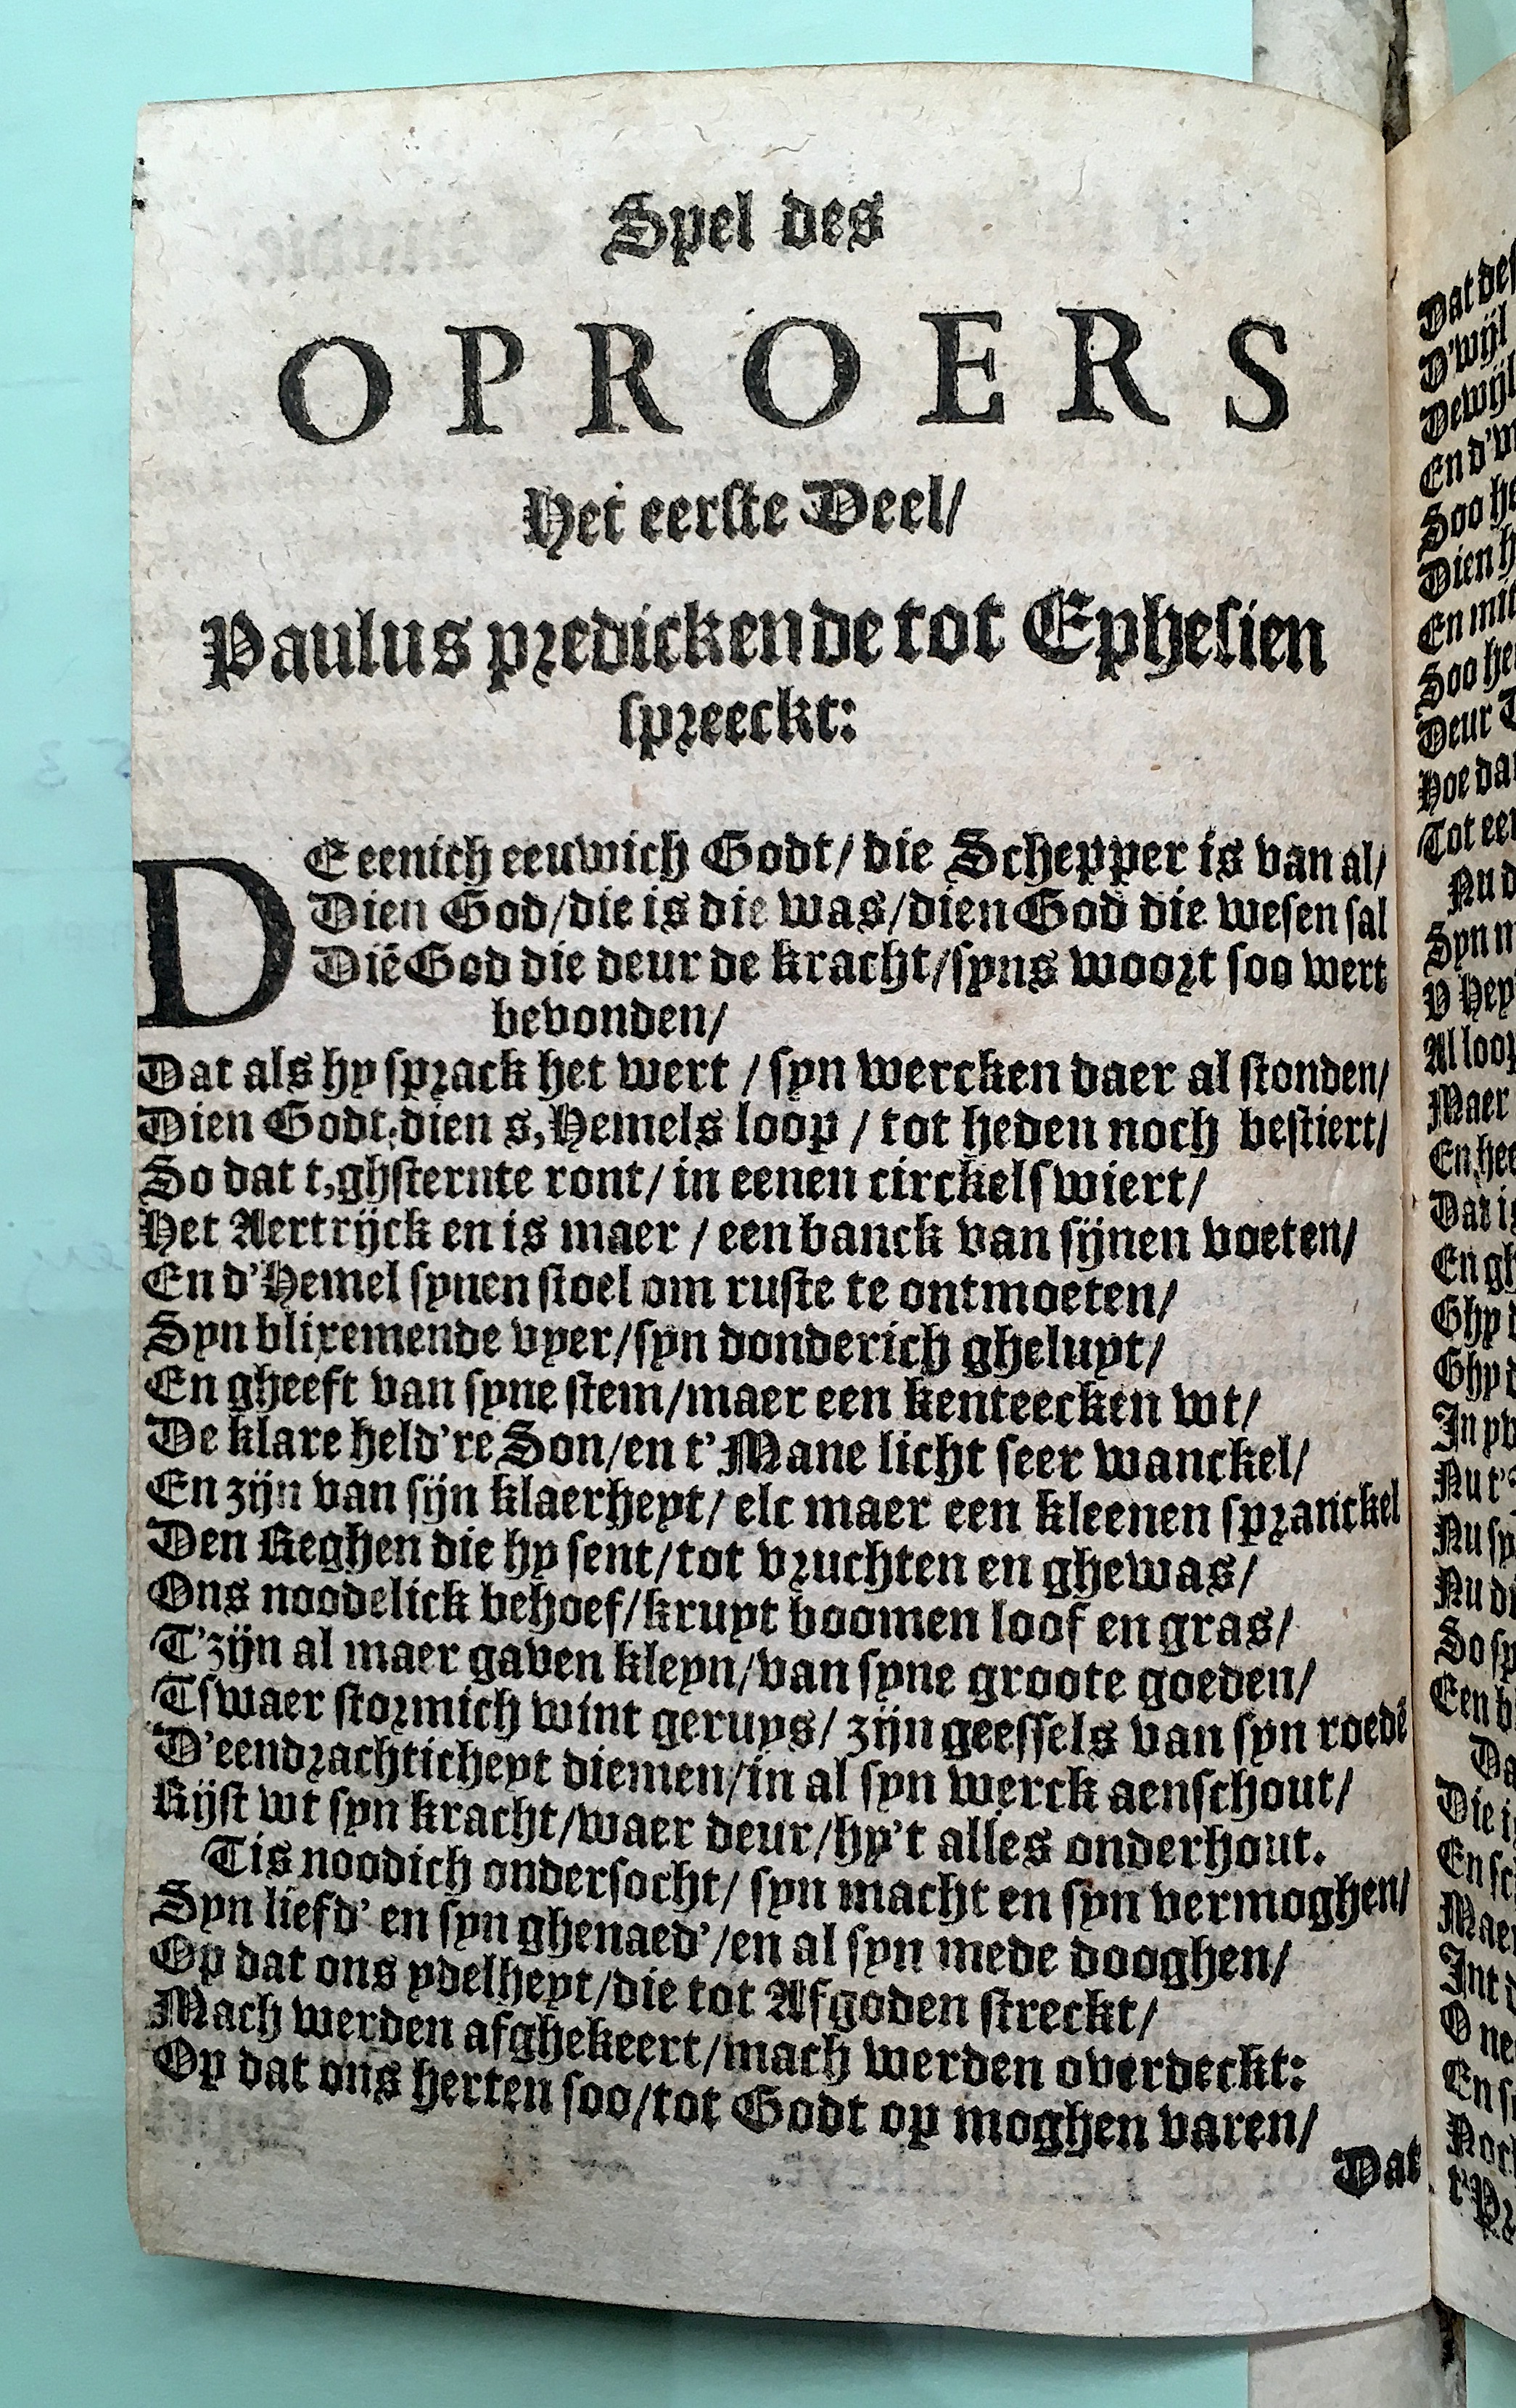 Spel des
OPROERS
Het eerste Deel/
Paulus predickende tot Ephesien
spreeckt:
DE eenich eeuwich Godt/ die Schepper is van al/
Dien God/die is die was/dien God die wesen sal
Diē God die deur de kracht/syns woort soo wert
bevonden/
Dat als hy sprack het wert / syn wercken daer al stonden/
Dien Godt, dien s,Hemels loop / tot heden noch bestiert/
So dat t,ghsternte ront/ in eenen circkel swiert/
Het Aertrijck en is maer / een banck van sijnen voeten/
En d'Hemel synen stoel om ruste te ontmoeten/
Syn blixemende vyer/syn donderich gheluyt/
En gheeft van syne stem/maer een kenteecken wt/
De klare held're Son/en t'Mane licht seer wanckel/
En zijn van sijn klaerheyt/ elc maer een kleenen spranckel
Den Reghen die hy sent/tot vruchten en ghewas/
Ons noodelick behoef/kruyt boomen loof en gras/
T'zijn al maer gaven kleyn/van syne groote goeden/
Tswaer stormich wint geruys/ zijn geessels van syn roedē
D'eendrachticheyt diemen/in al syn werck aenschout/
Rijst wt syn kracht/waer deur/hy't alles onderhout.
Tis noodich ondersocht/ syn macht en syn vermoghen/
Syn liefd' en syn ghenaed'/en al syn mede dooghen/
Op dat ons ydelheyt/die tot Afgoden streckt/
Mach werden afghekeert/mach werden overdeckt:
Op dat ons herten soo/tot Godt op moghen varen/
Dat